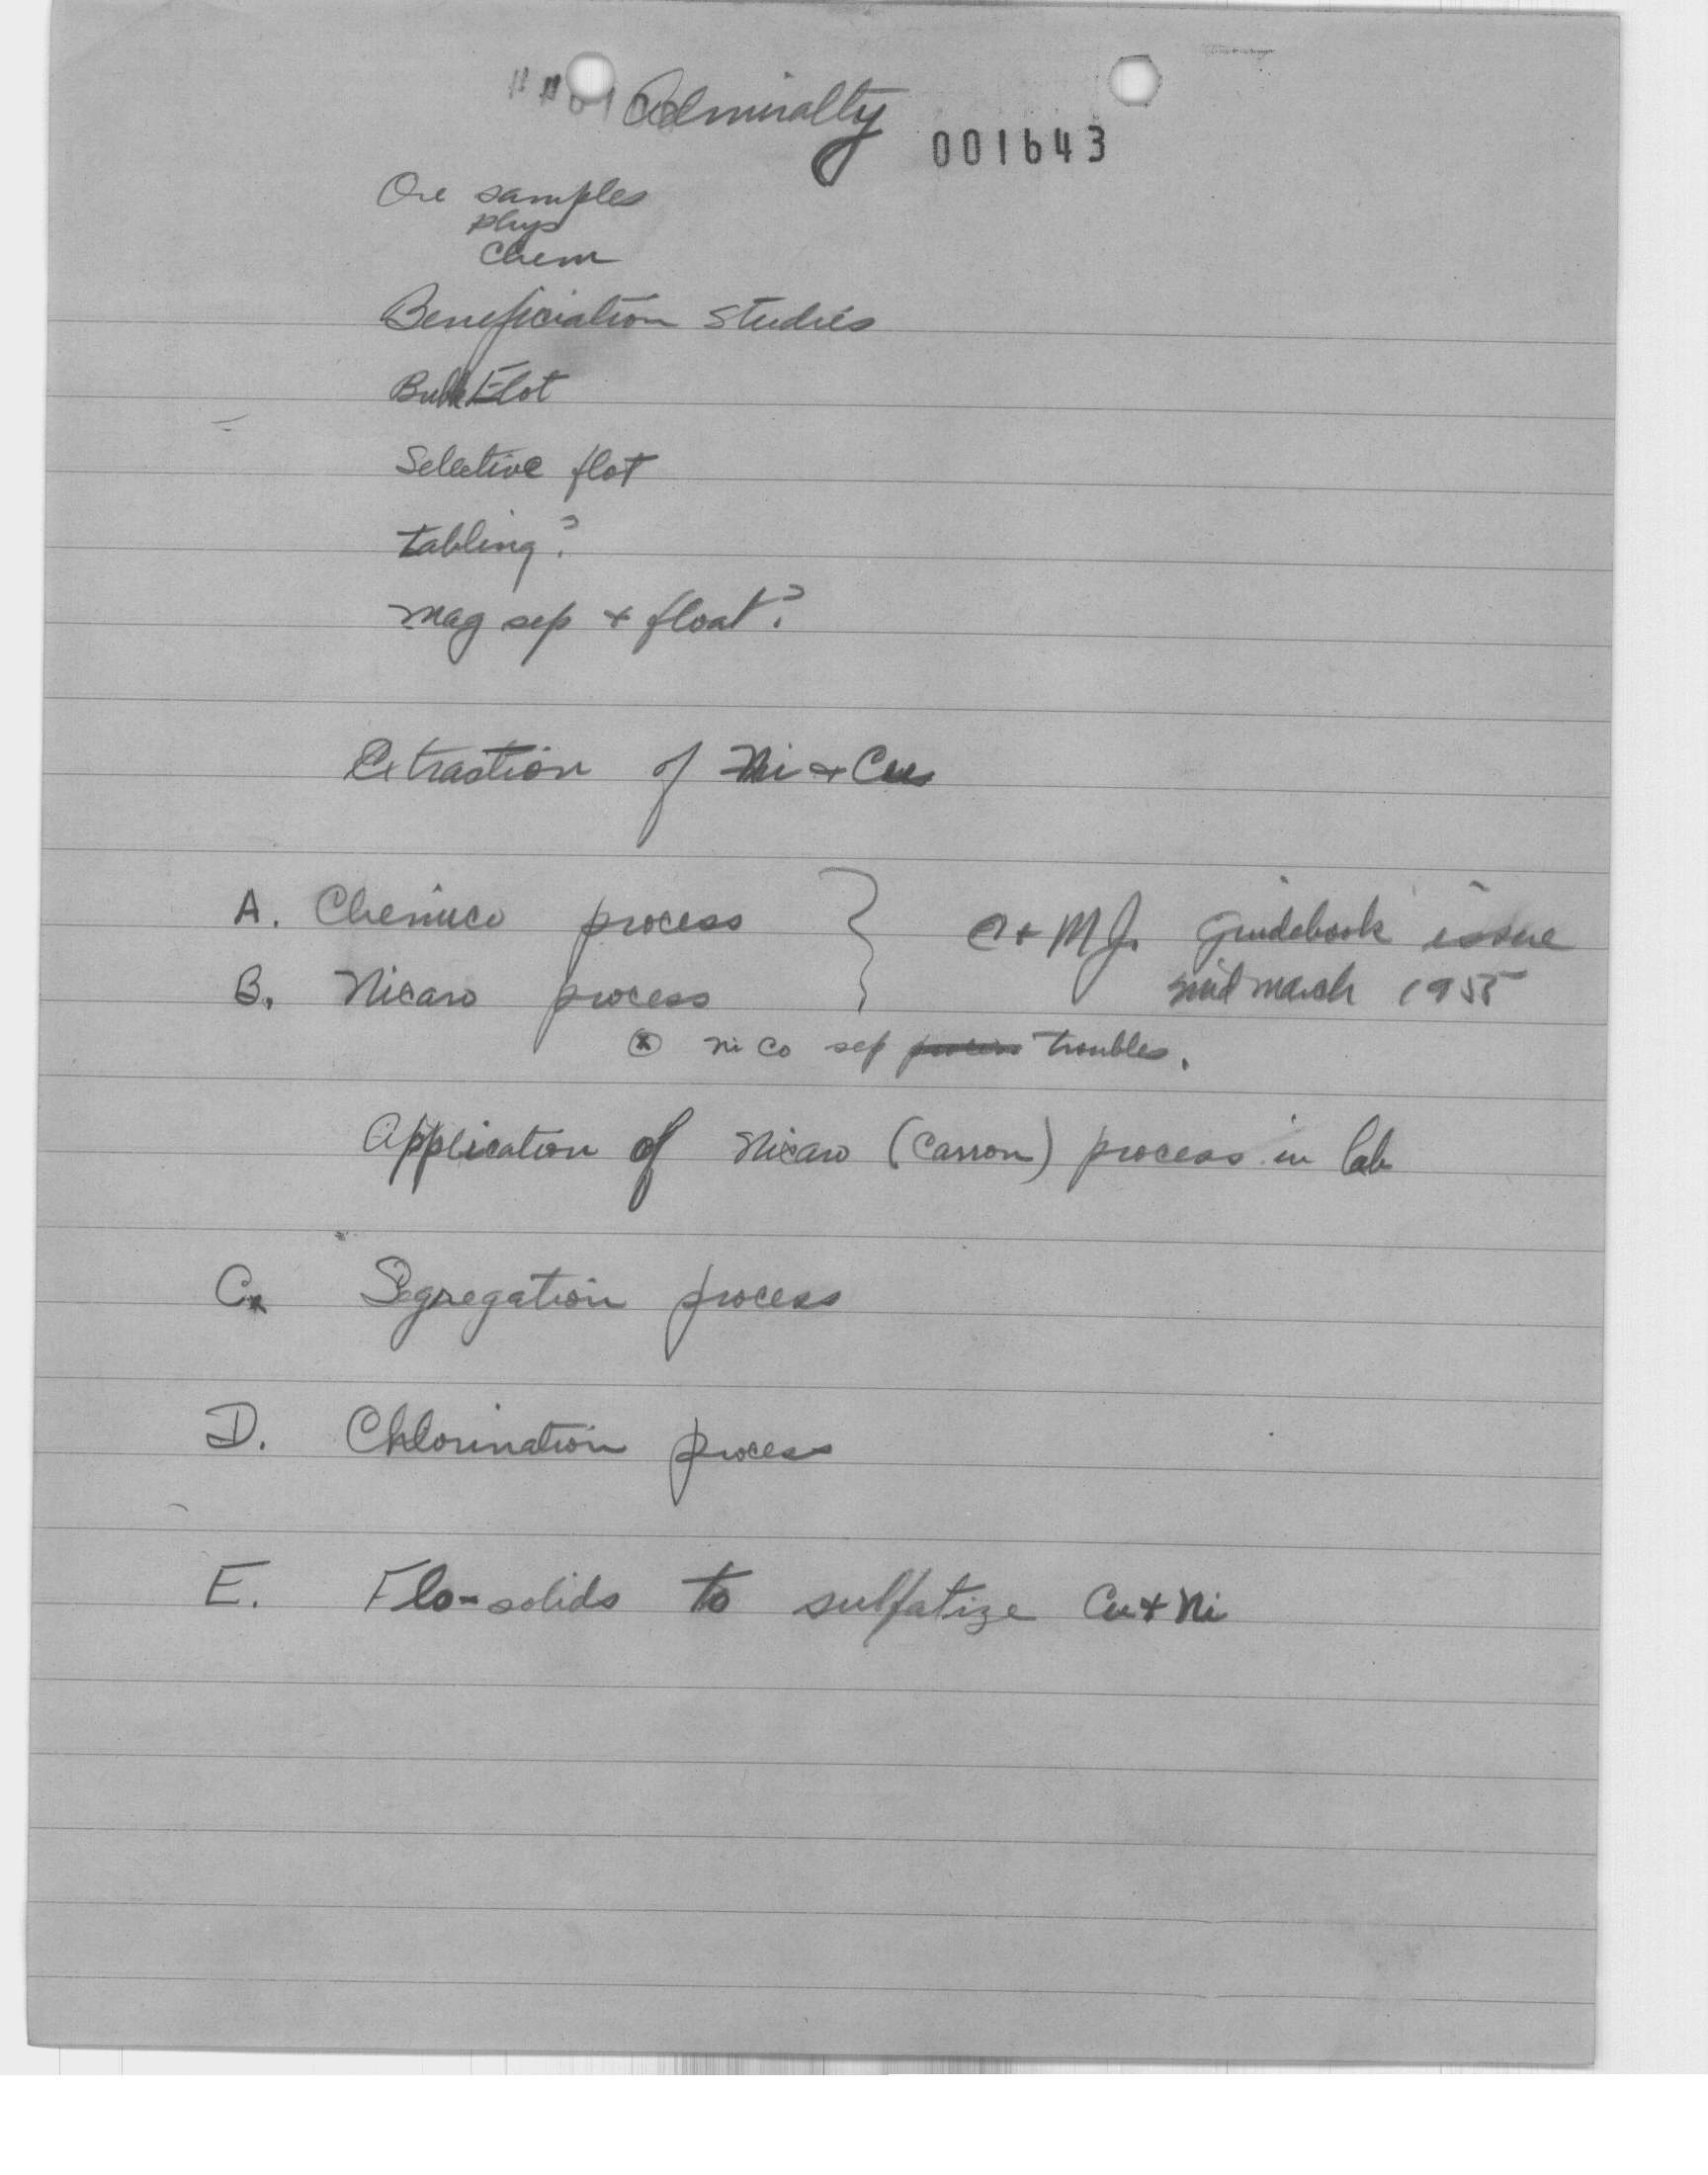 Admiralty
001643
Ore samples
phys
Chem
Beneficiation studies
Bulk Flot
Selective flot
tabling?
mag sep + float?
Extraction of Ni + Cu
A. Chemico process
E + MJ. Guidebook issue
B. Nicaro process
mid march 1955
ni co sep process troubles.
Application of Nicaro (Carron) process in lab
C. Segregation process
D. Chlorination process
E. Flo-solids to sulfatize Cu + Ni